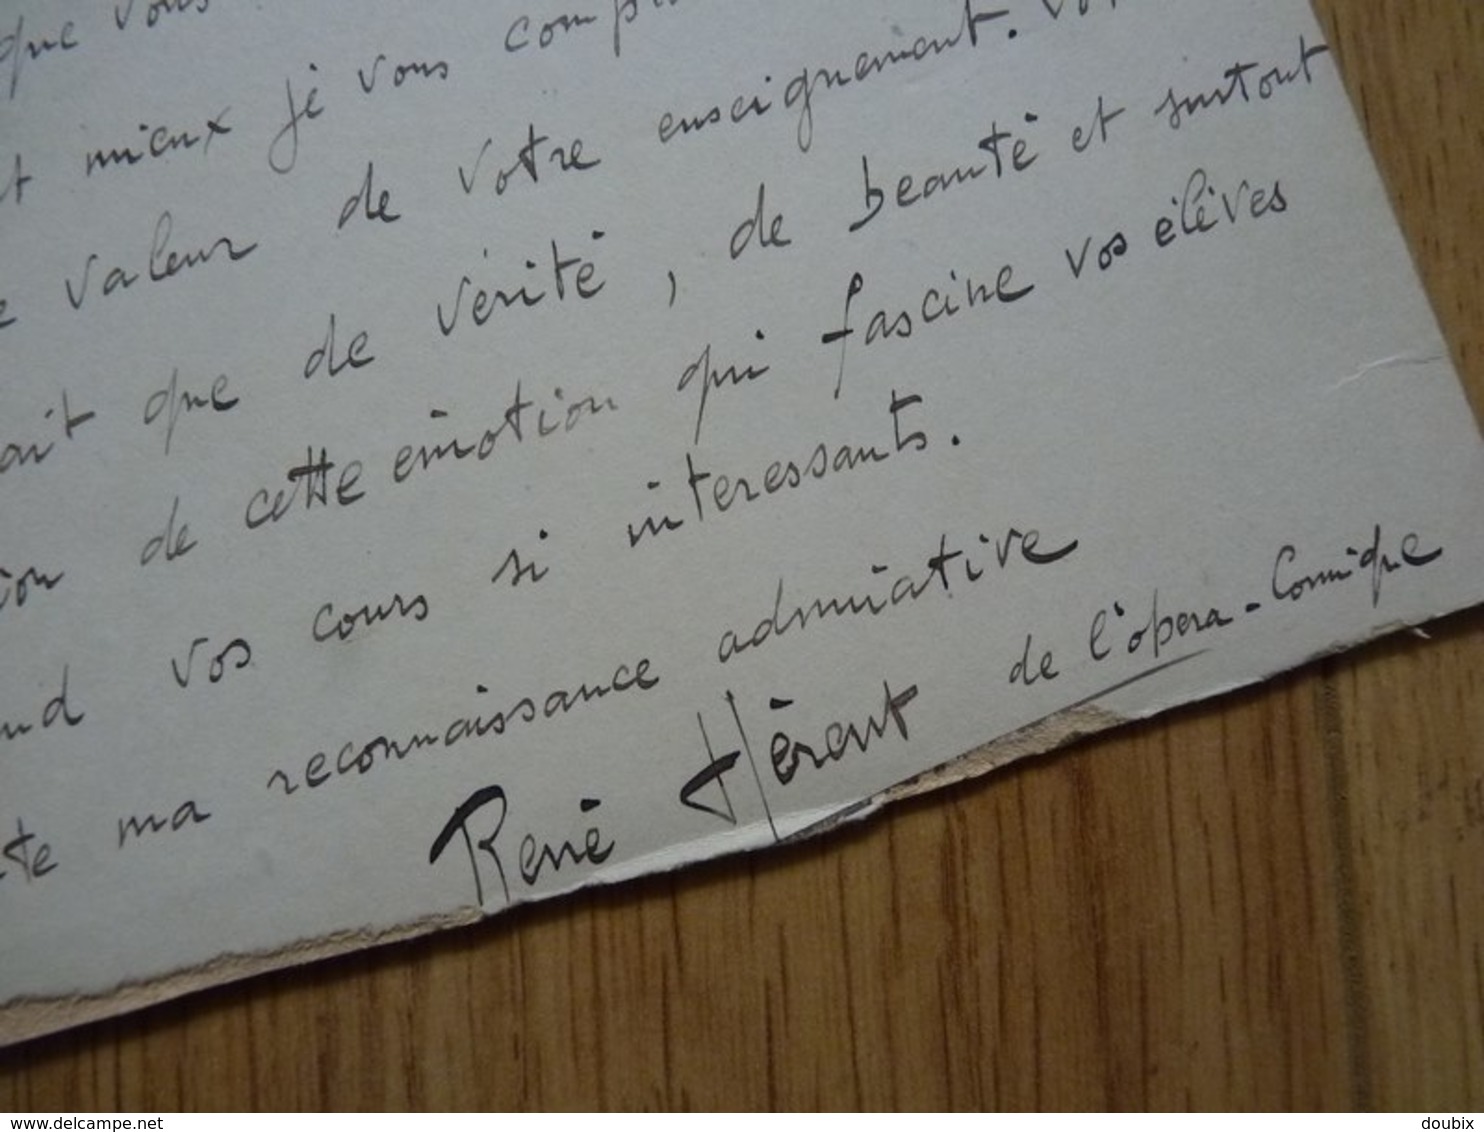 que vous
mieux je vous
valeur de votre enseignement.
que de vérité, de beauté et surtout
de cette émotion qui fascine vos élèves
vos cours si interessants.
ma reconnaissance admirative
René Hérent de l'opéra-Comique
www.delcampe.net
doubix